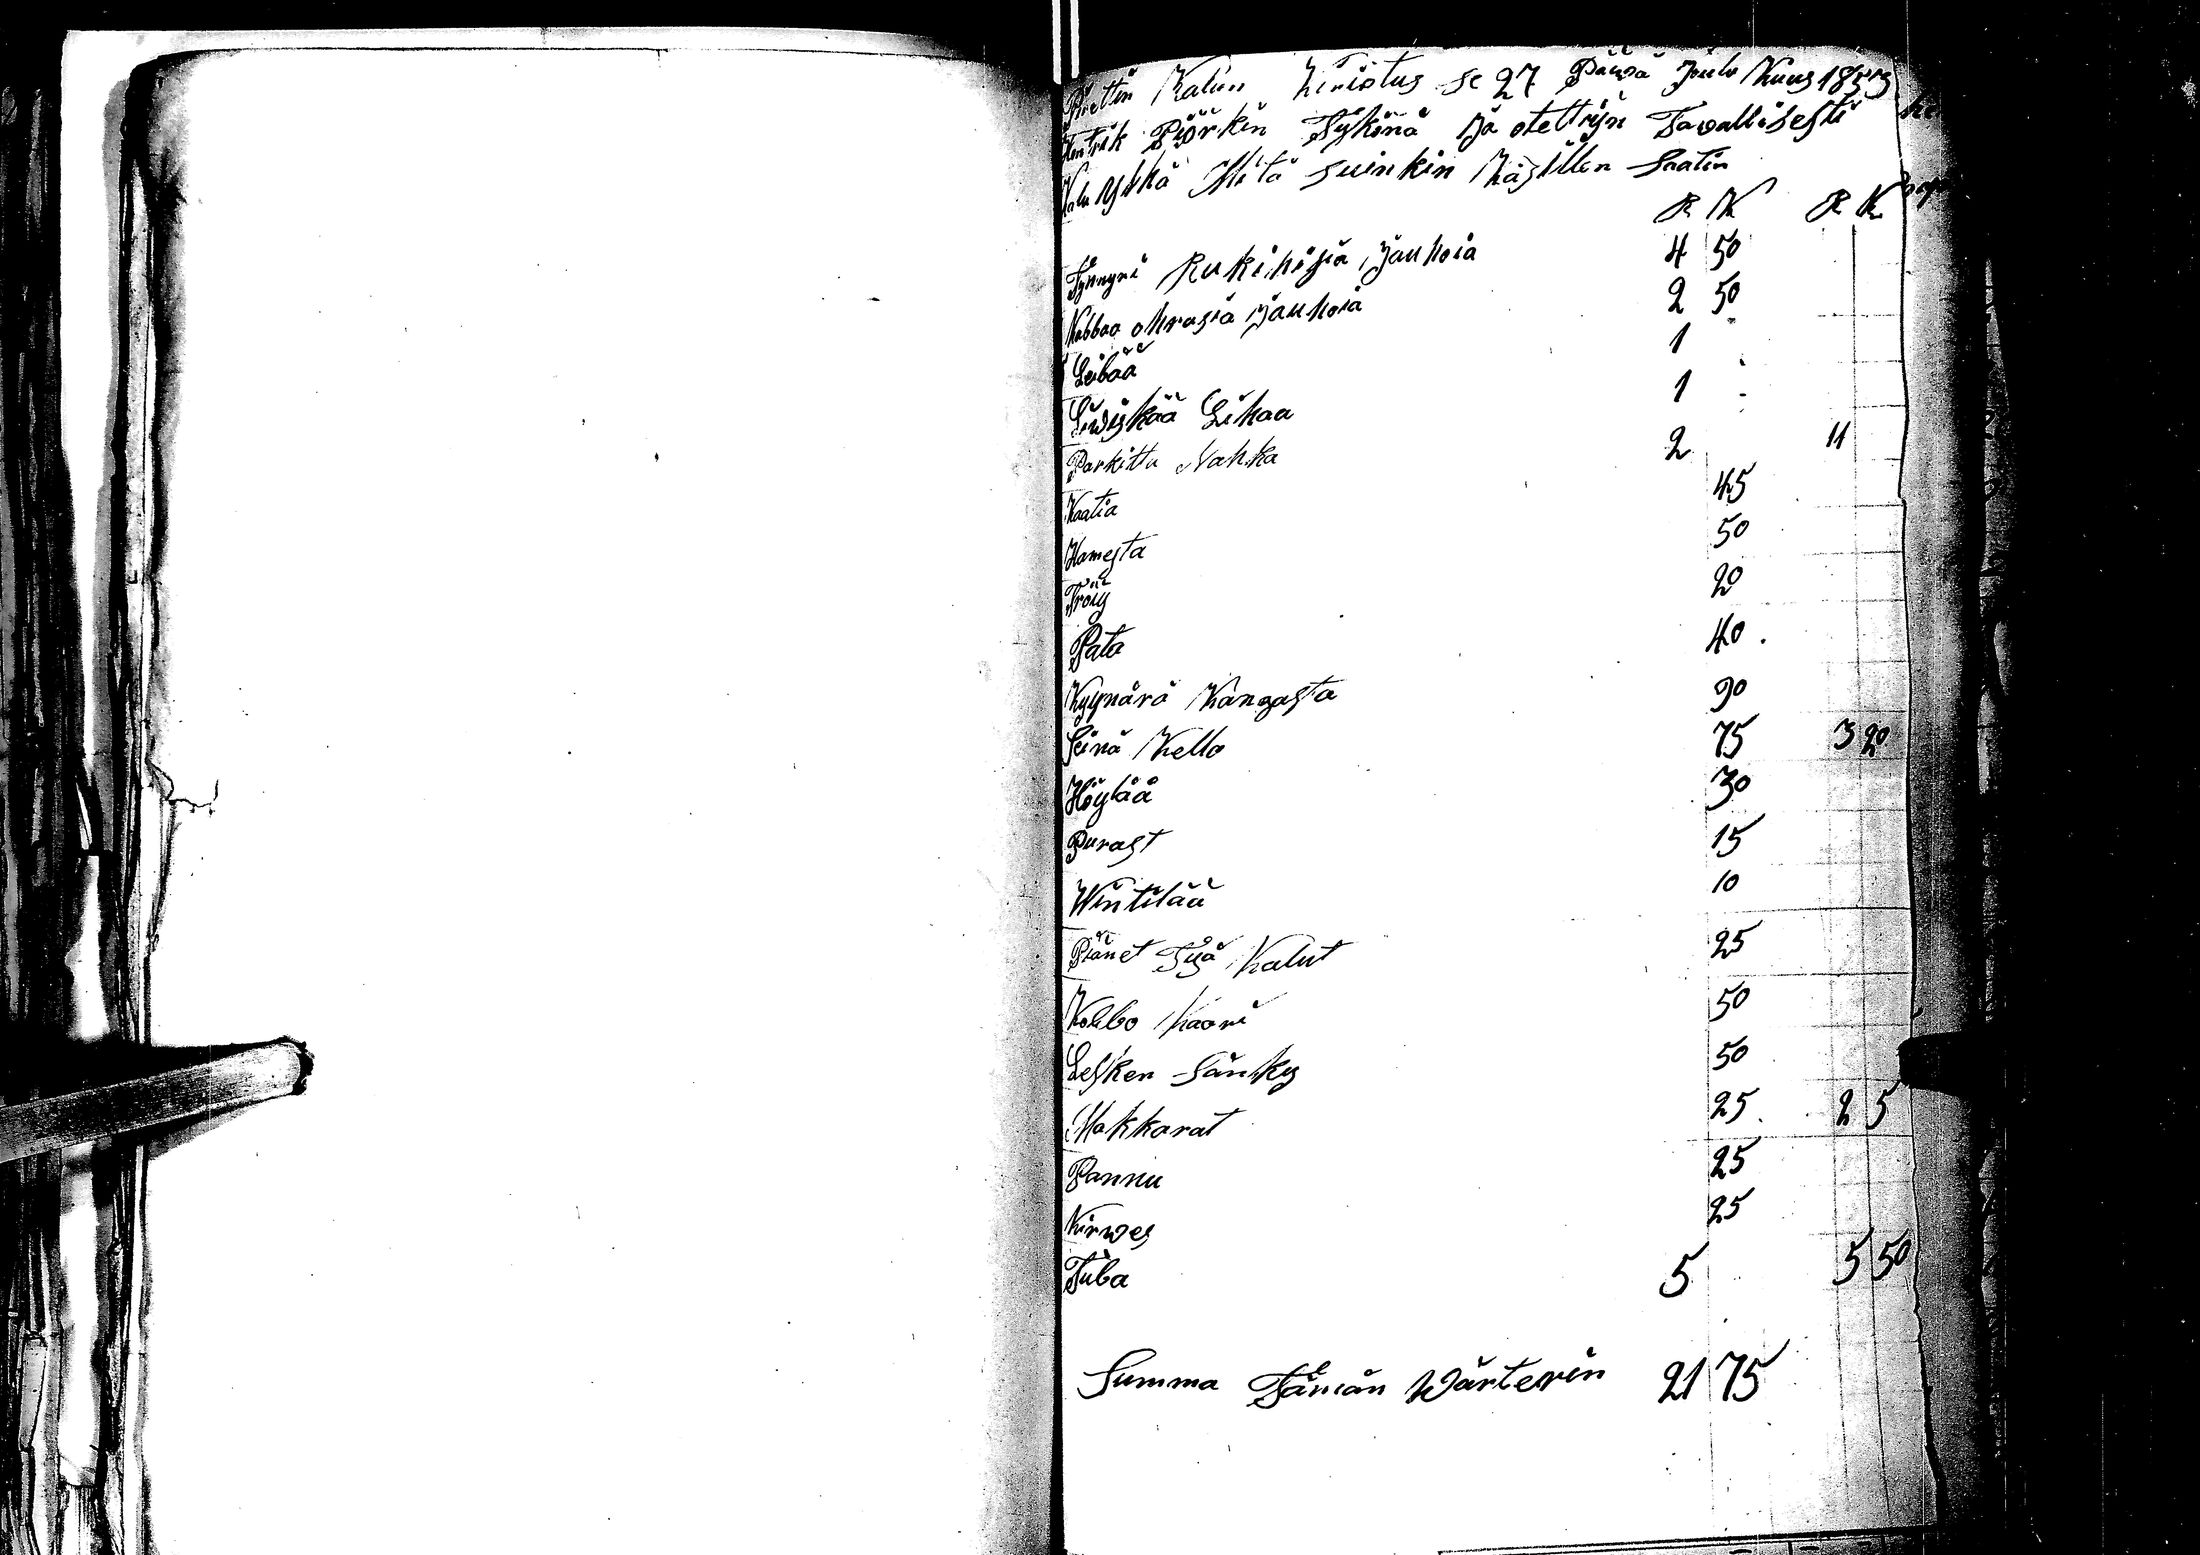 Pidettin Kalun Kiriotus se 27 Päivä Joulu Kuus 1853
Hentrik Pjörkin Tykönä ja otettijn Tavallisesti
Kalu ylhä Mitä suinkin Käsillen Saatin
R K R K
Tynnyri Rukihisia Jauhoia 4 50
Kabbaa ohrasia Jauhoia 2 50
Leibää 1
Leiviskää Lihaa 1
Parkittu Nahka 2 11
Kaatia 45
Hamesta 50
Tröiy 20
Pata 40
Kyynärä Kangasta 90
Seinä Kello 75 3 20
Höylää 30
Purast 15
Wintilää 10
Piänet Työ Kalut 25
Kolbo Kaari 50
Lesken Sänky 50
Makkarat 25 2 5
Pannu 25
Kirwes 25
Tuba 5 5 50
Summa Tämän Wärterin 21 75